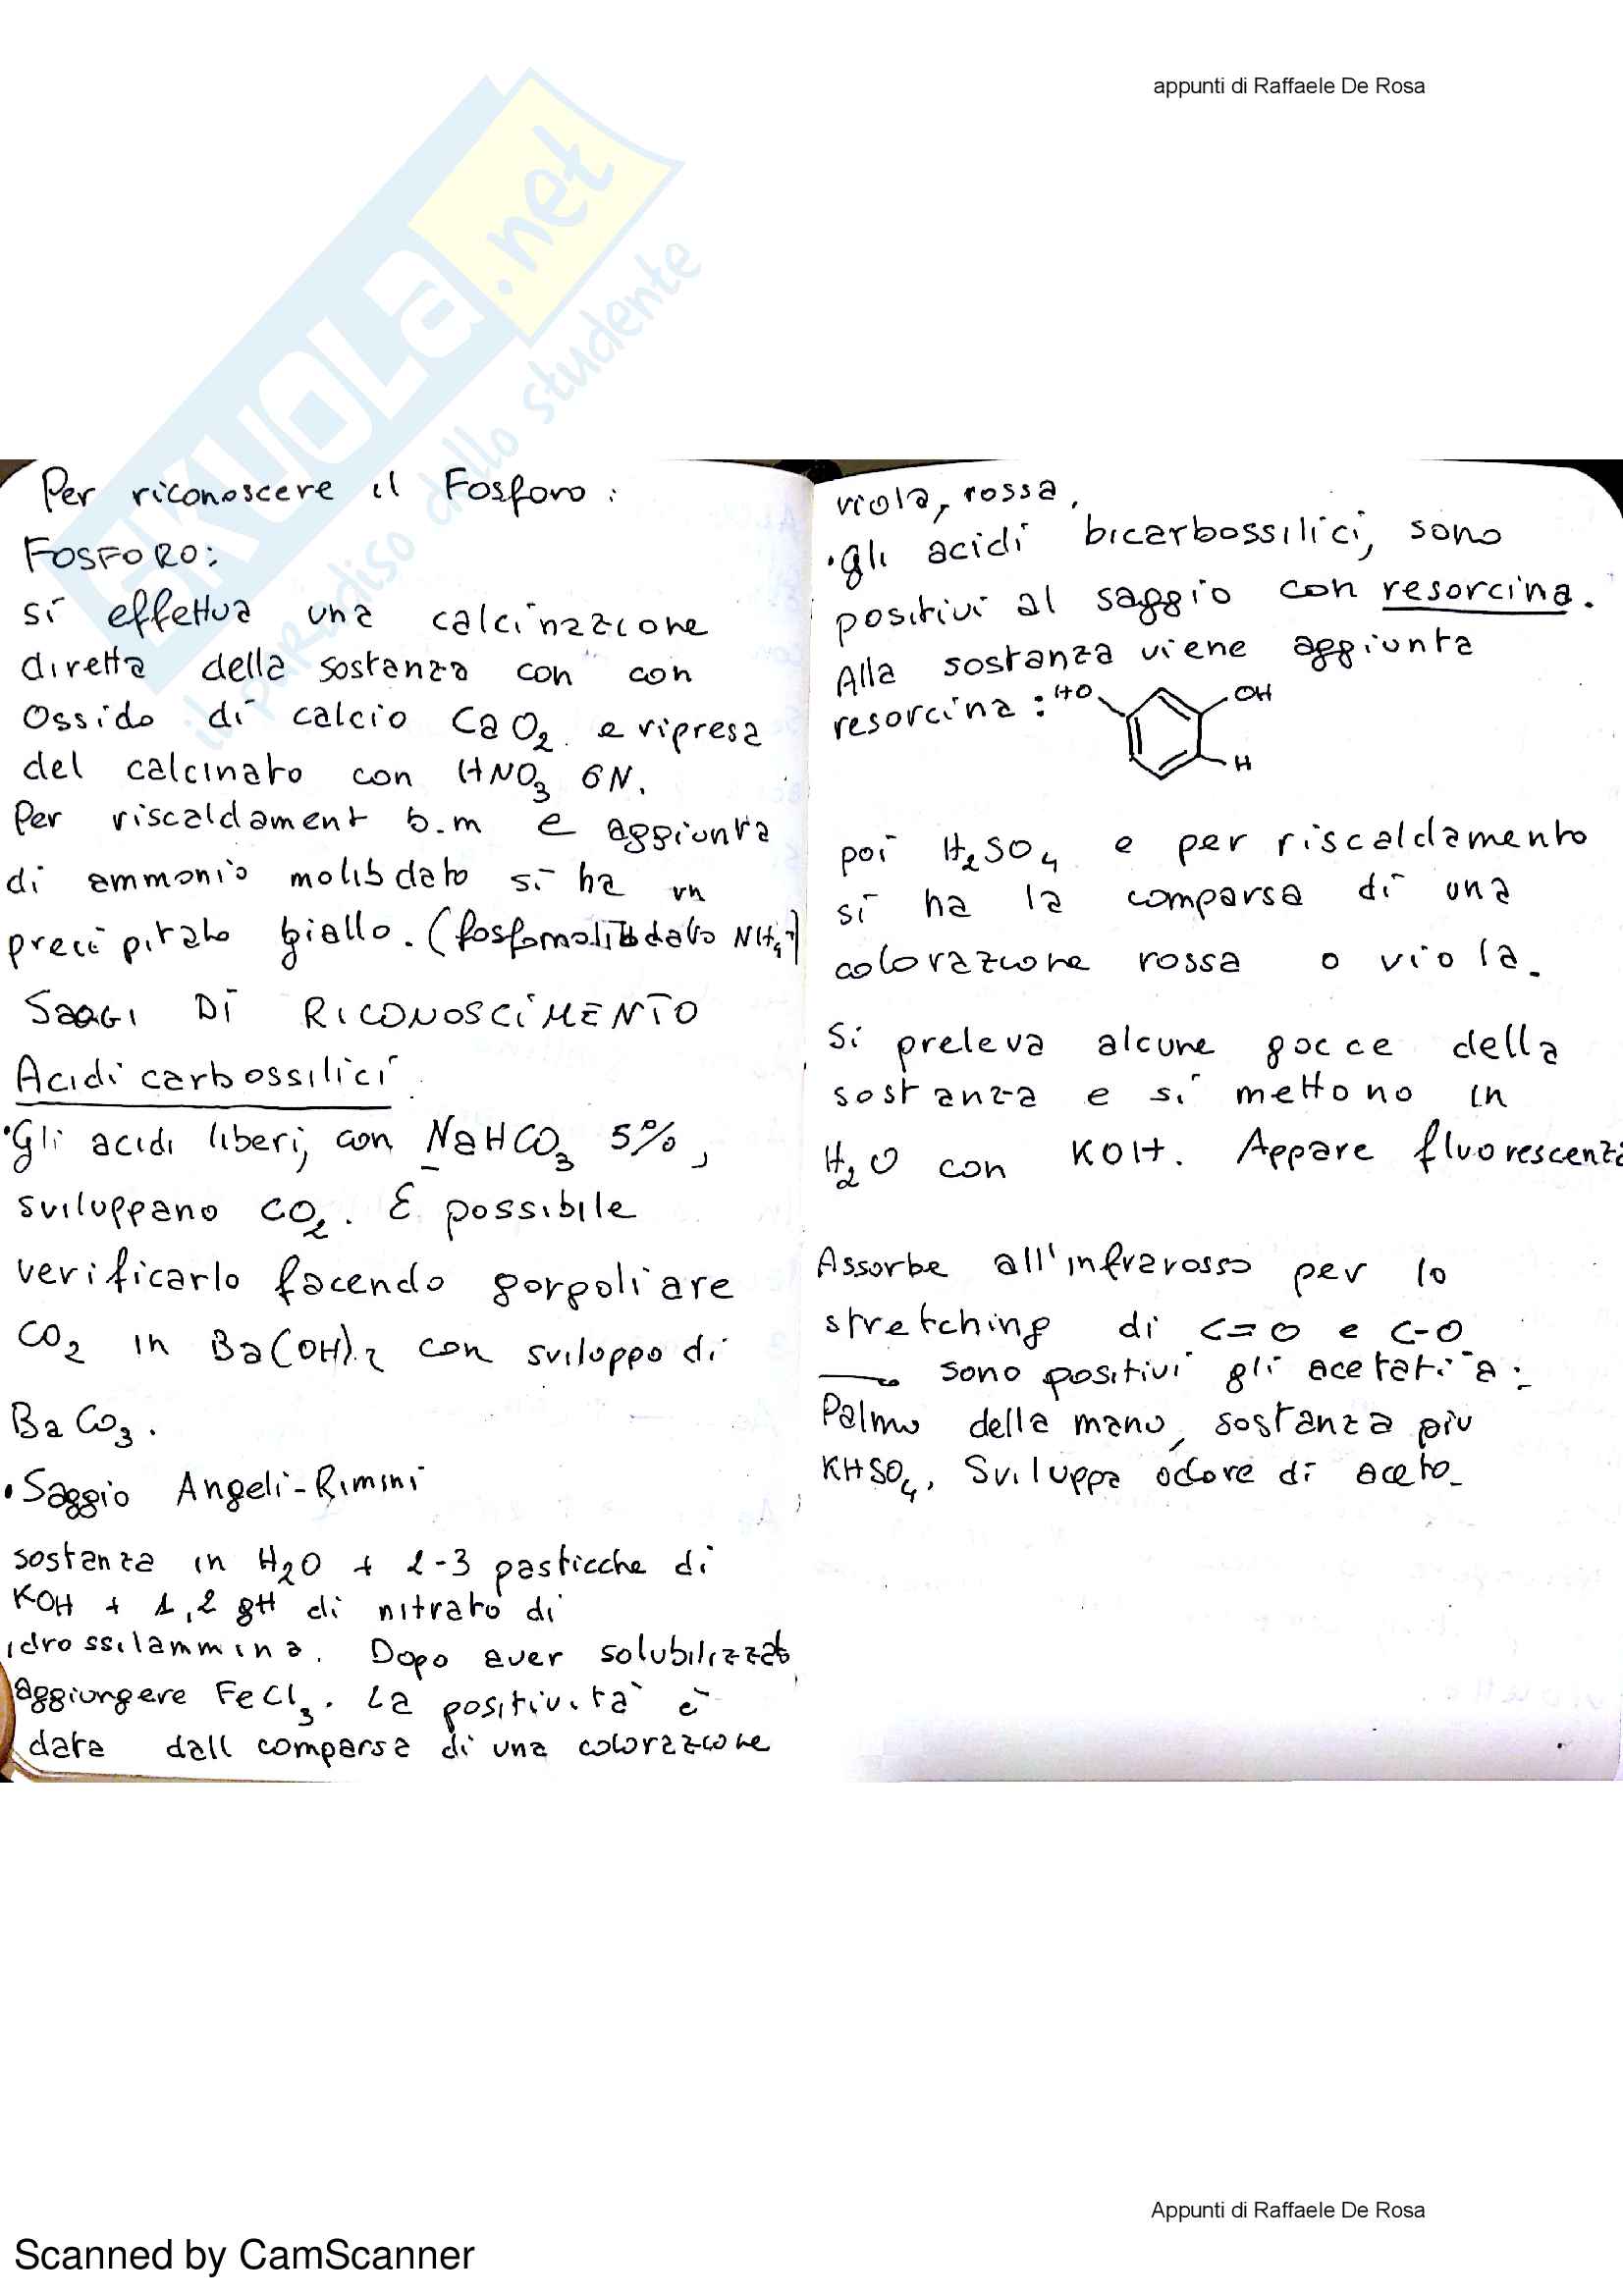 appunti di Raffaele De Rosa
SKUOLA.net
il paradiso dello studente
Per riconoscere il Fosforo:
FOSFORO:
si effettua una calcinazione
diretta della sostanza con con
Ossido di calcio CaO₂ e ripresa
del calcinato con HNO₃ 6N.
Per riscaldament b.m e aggiunta
di ammonio molibdato si ha un
precipitato giallo. (fosfomolibdato NH₄⁺)
SAGGI DI RICONOSCIMENTO
Acidi carbossilici
•Gli acidi liberi, con NaHCO₃ 5%,
sviluppano CO₂. È possibile
verificarlo facendo gorgoliare
CO₂ in Ba(OH)₂ con sviluppo di
BaCO₃.
•Saggio Angeli-Rimini
sostanza in H₂O + 2-3 pasticche di
KOH + 1,2 gtt di nitrato di
idrossilammina. Dopo aver solubilizzato
aggiungere FeCl₃. La positività è
data dall comparsa di una colorazione
viola, rossa.
•gli acidi bicarbossilici, sono
positivi al saggio con resorcina.
Alla sostanza viene aggiunta
resorcina: HO OH
H
poi H₂SO₄ e per riscaldamento
si ha la comparsa di una
colorazione rossa o viola.
Si preleva alcune gocce della
sostanza e si mettono in
H₂O con KOH. Appare fluorescenza
Assorbe all'infrarosso per lo
stretching di C=O e C-O
sono positivi gli acetati a:
Palmo della mano, sostanza più
KHSO₄. Sviluppa odore di aceto
Appunti di Raffaele De Rosa
Scanned by CamScanner